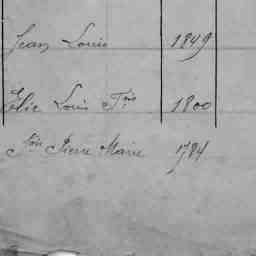 Jean Louis 1849
Elie Louis Fçois 1800
Fçois Pierre Marie 1784